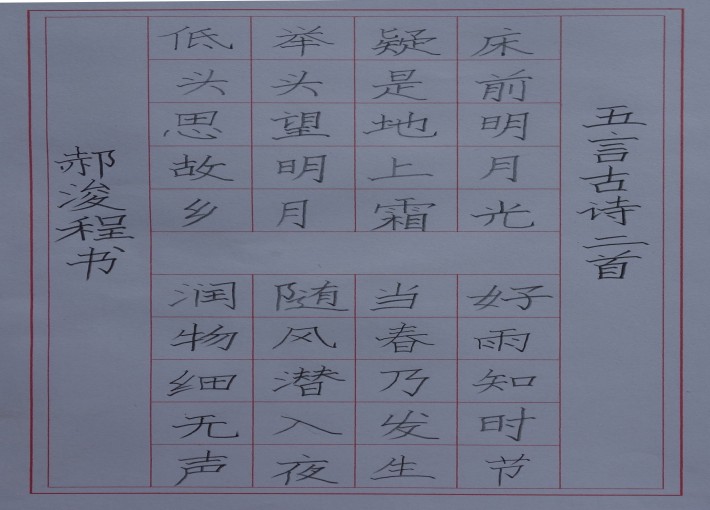 五言古诗二首
床前明月光
疑是地上霜
举头望明月
低头思故乡
好雨知时节
当春乃发生
随风潜入夜
润物细无声
郝浚程书